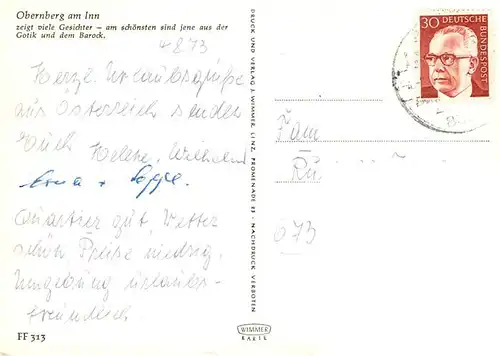 Obernberg am Inn
zeigt viele Gesichter – am schönsten sind jene aus der
Gotik und dem Barock.
4873
Herzl. Urlaubsgrüße
aus Österreich senden
Euch Helene, Wilhelm
Erna +
Quartier gut, Wetter
schön Preise niedrig,
Umgebung urlaubs-
freundlich
FF 313
DRUCK UND VERLAG J. WIMMER, LINZ, PROMENADE 23 - NACHDRUCK VERBOTEN
WIMMER
KARTE
30 DEUTSCHE
BUNDESPOST
Fam
Rü
673